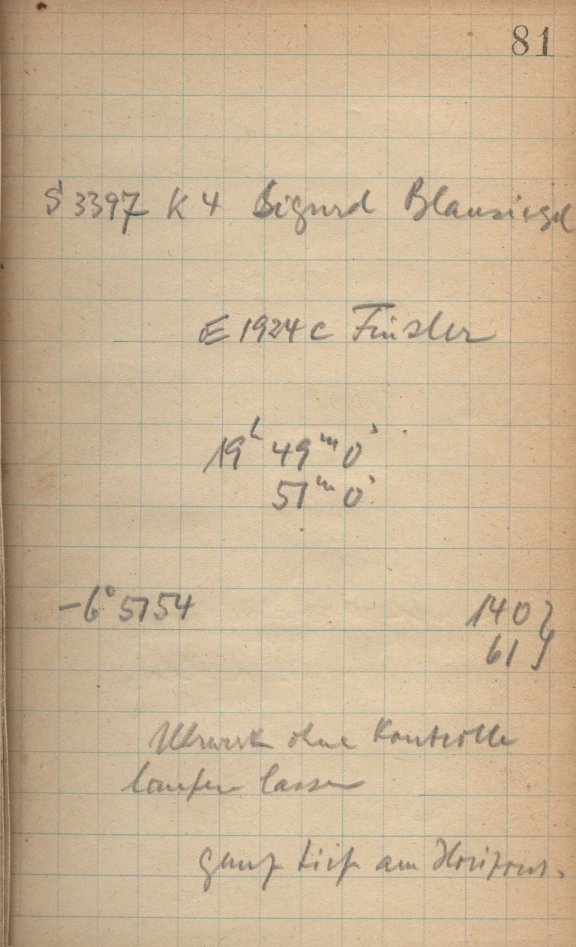 81
S 3397 K 4 Sigurd Blausiegel
E 1924 c Finsler
19ʰ 49ᵐ 0ˢ
51ᵐ 0ˢ
-6° 5154 140 }
61 }
Uhrwerk ohne Kontrolle
laufen lassen
ganz tief am Horizont.